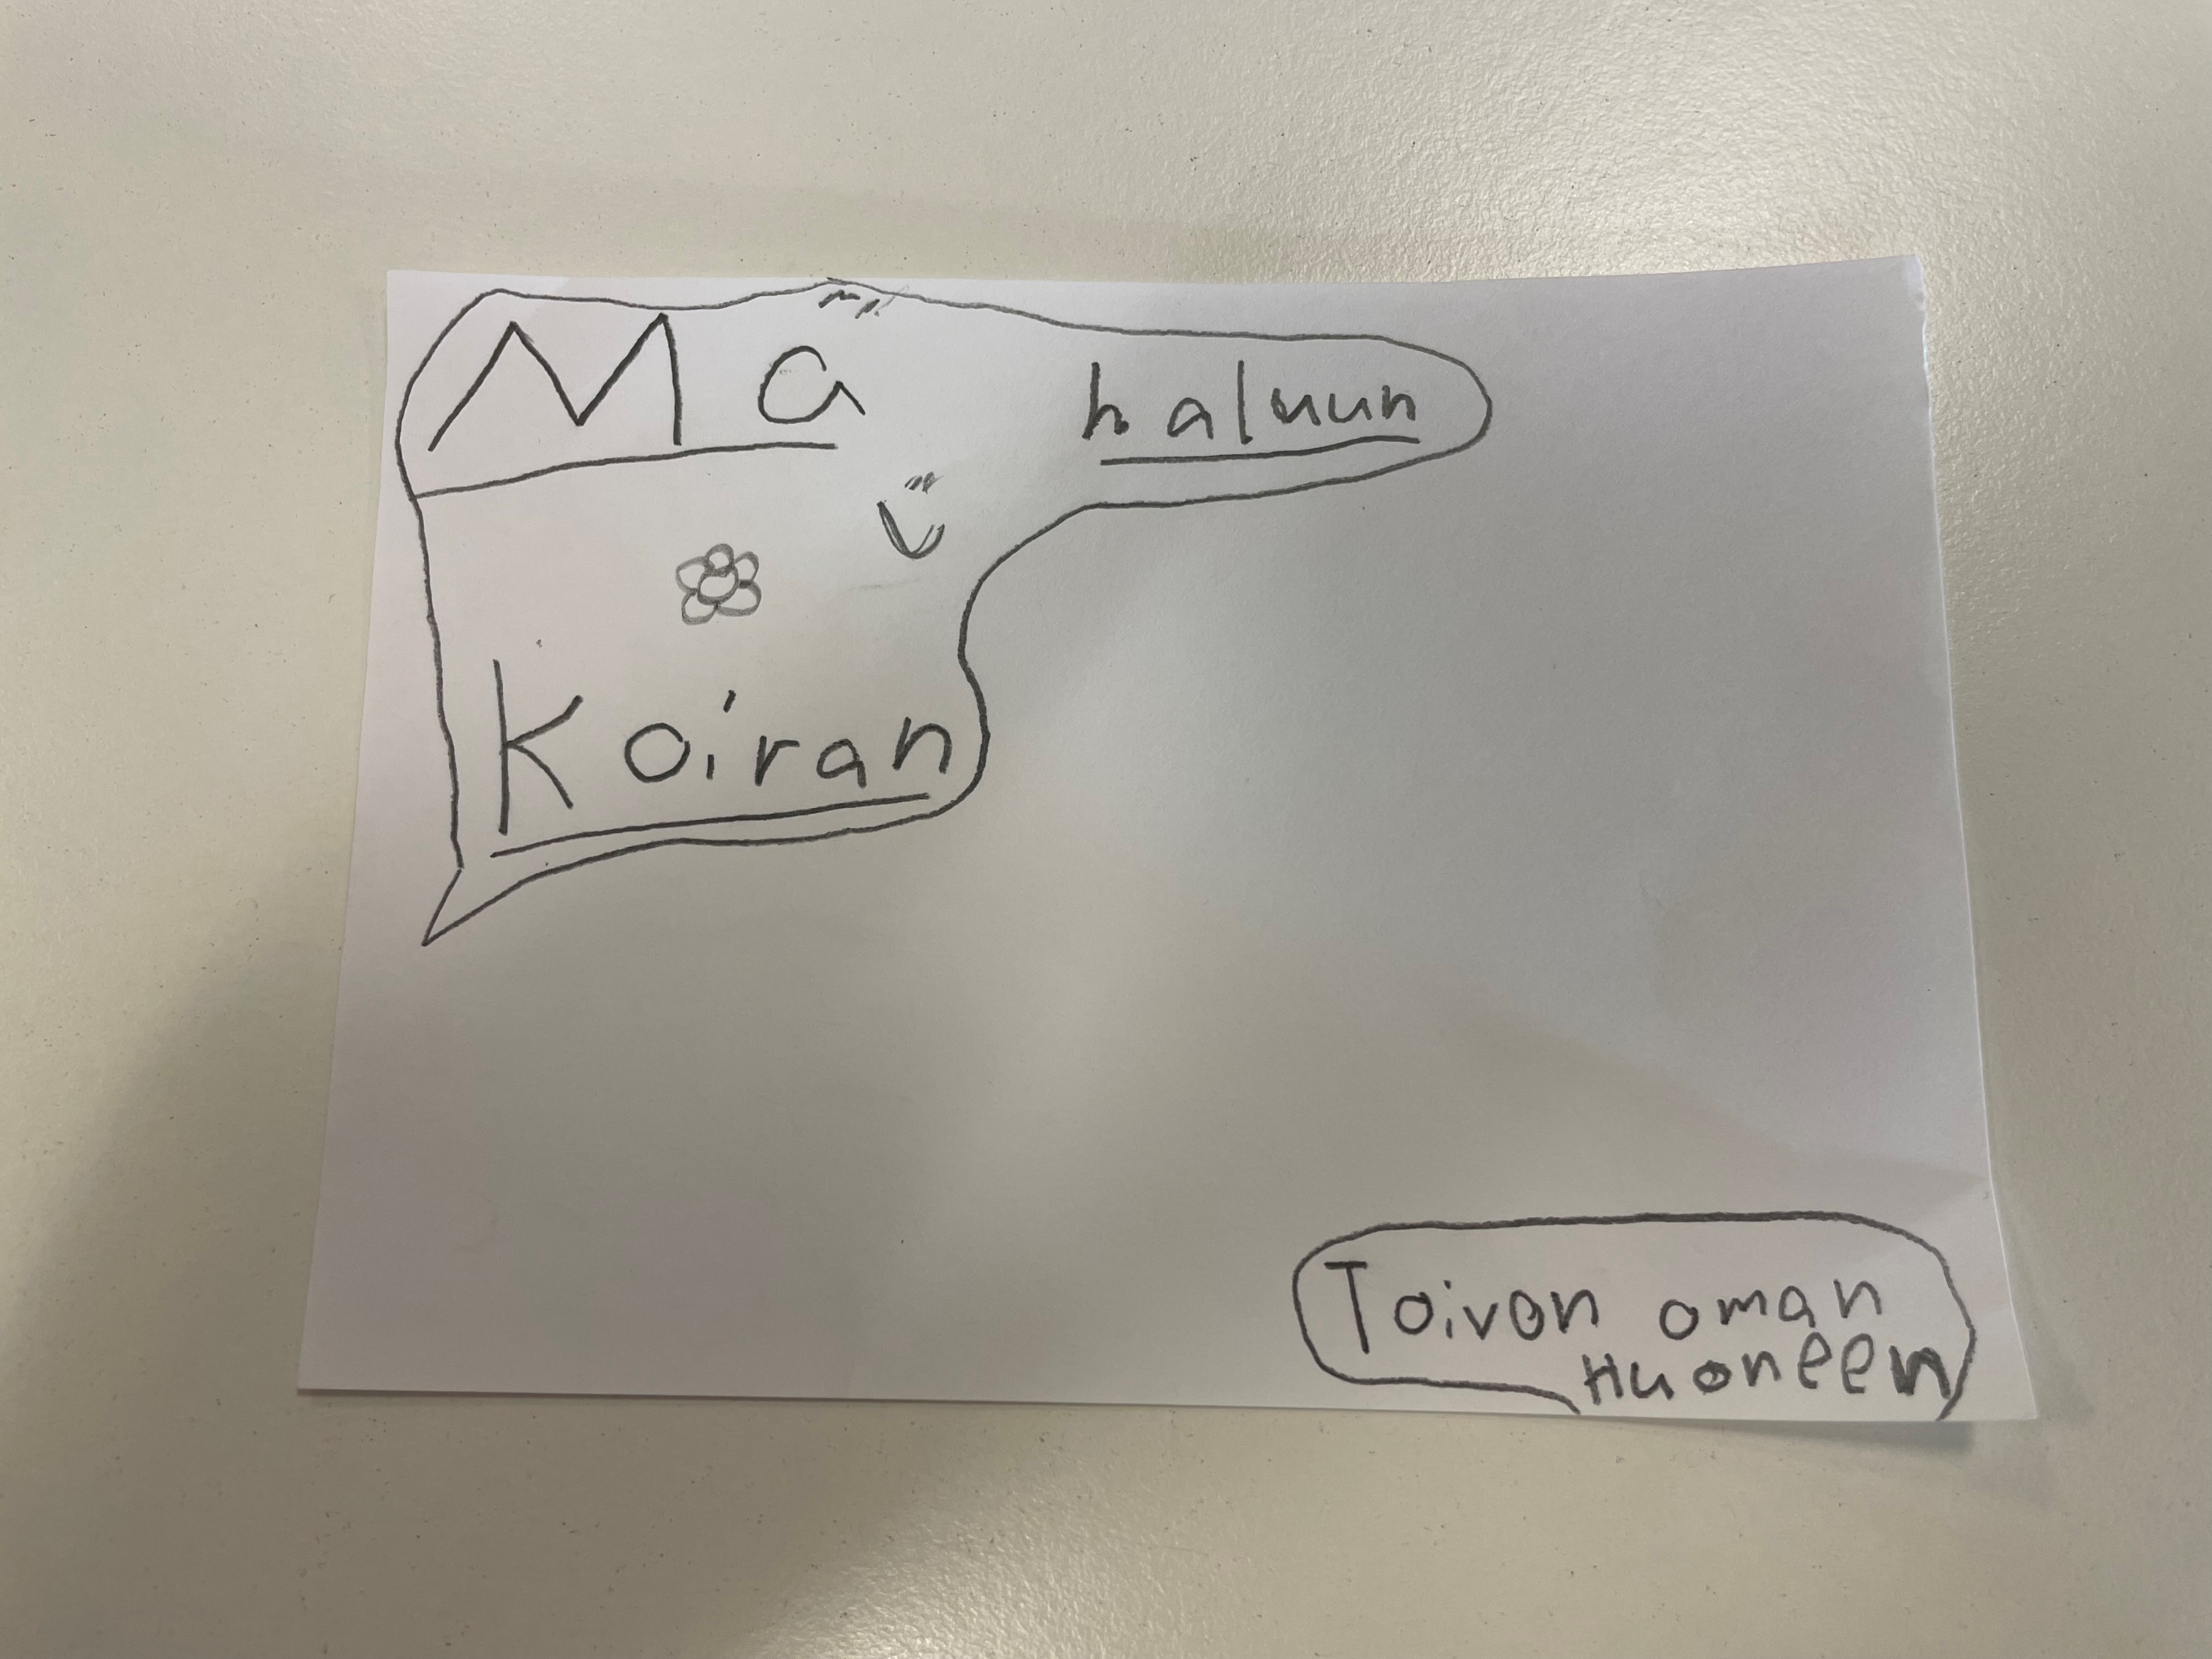 Ma haluun
Koiran
Toivon oman
Huoneen